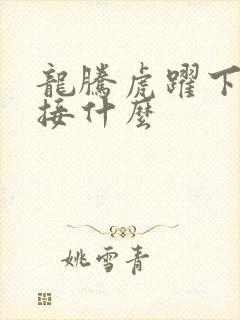 龍騰虎躍下
接什麼
姚雪青